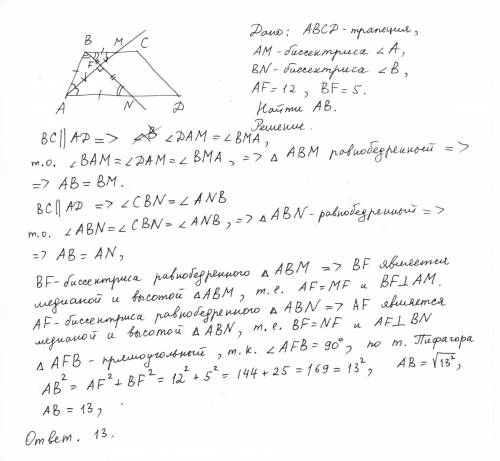 B M C
F
A N D
Дано: ABCD - трапеция,
AM - биссектриса ∠A,
BN - биссектриса ∠B,
AF = 12, BF = 5.
Найти AB.
Решение.
BC ∥ AD => ∠DAM = ∠BMA,
т.о. ∠BAM = ∠DAM = ∠BMA, => △ABM равнобедренный =>
=> AB = BM.
BC ∥ AD => ∠CBN = ∠ANB
т.о. ∠ABN = ∠CBN = ∠ANB, => △ABN - равнобедренный =>
=> AB = AN,
BF - биссектриса равнобедренного △ABM => BF является
медианой и высотой △ABM, т.е. AF = MF и BF ⊥ AM.
AF - биссектриса равнобедренного △ABN => AF является
медианой и высотой △ABN, т.е. BF = NF и AF ⊥ BN
△AFB - прямоугольный, т.к. ∠AFB = 90°, по т. Пифагора
AB² = AF² + BF² = 12² + 5² = 144 + 25 = 169 = 13², AB = √13²,
AB = 13,
Ответ. 13.